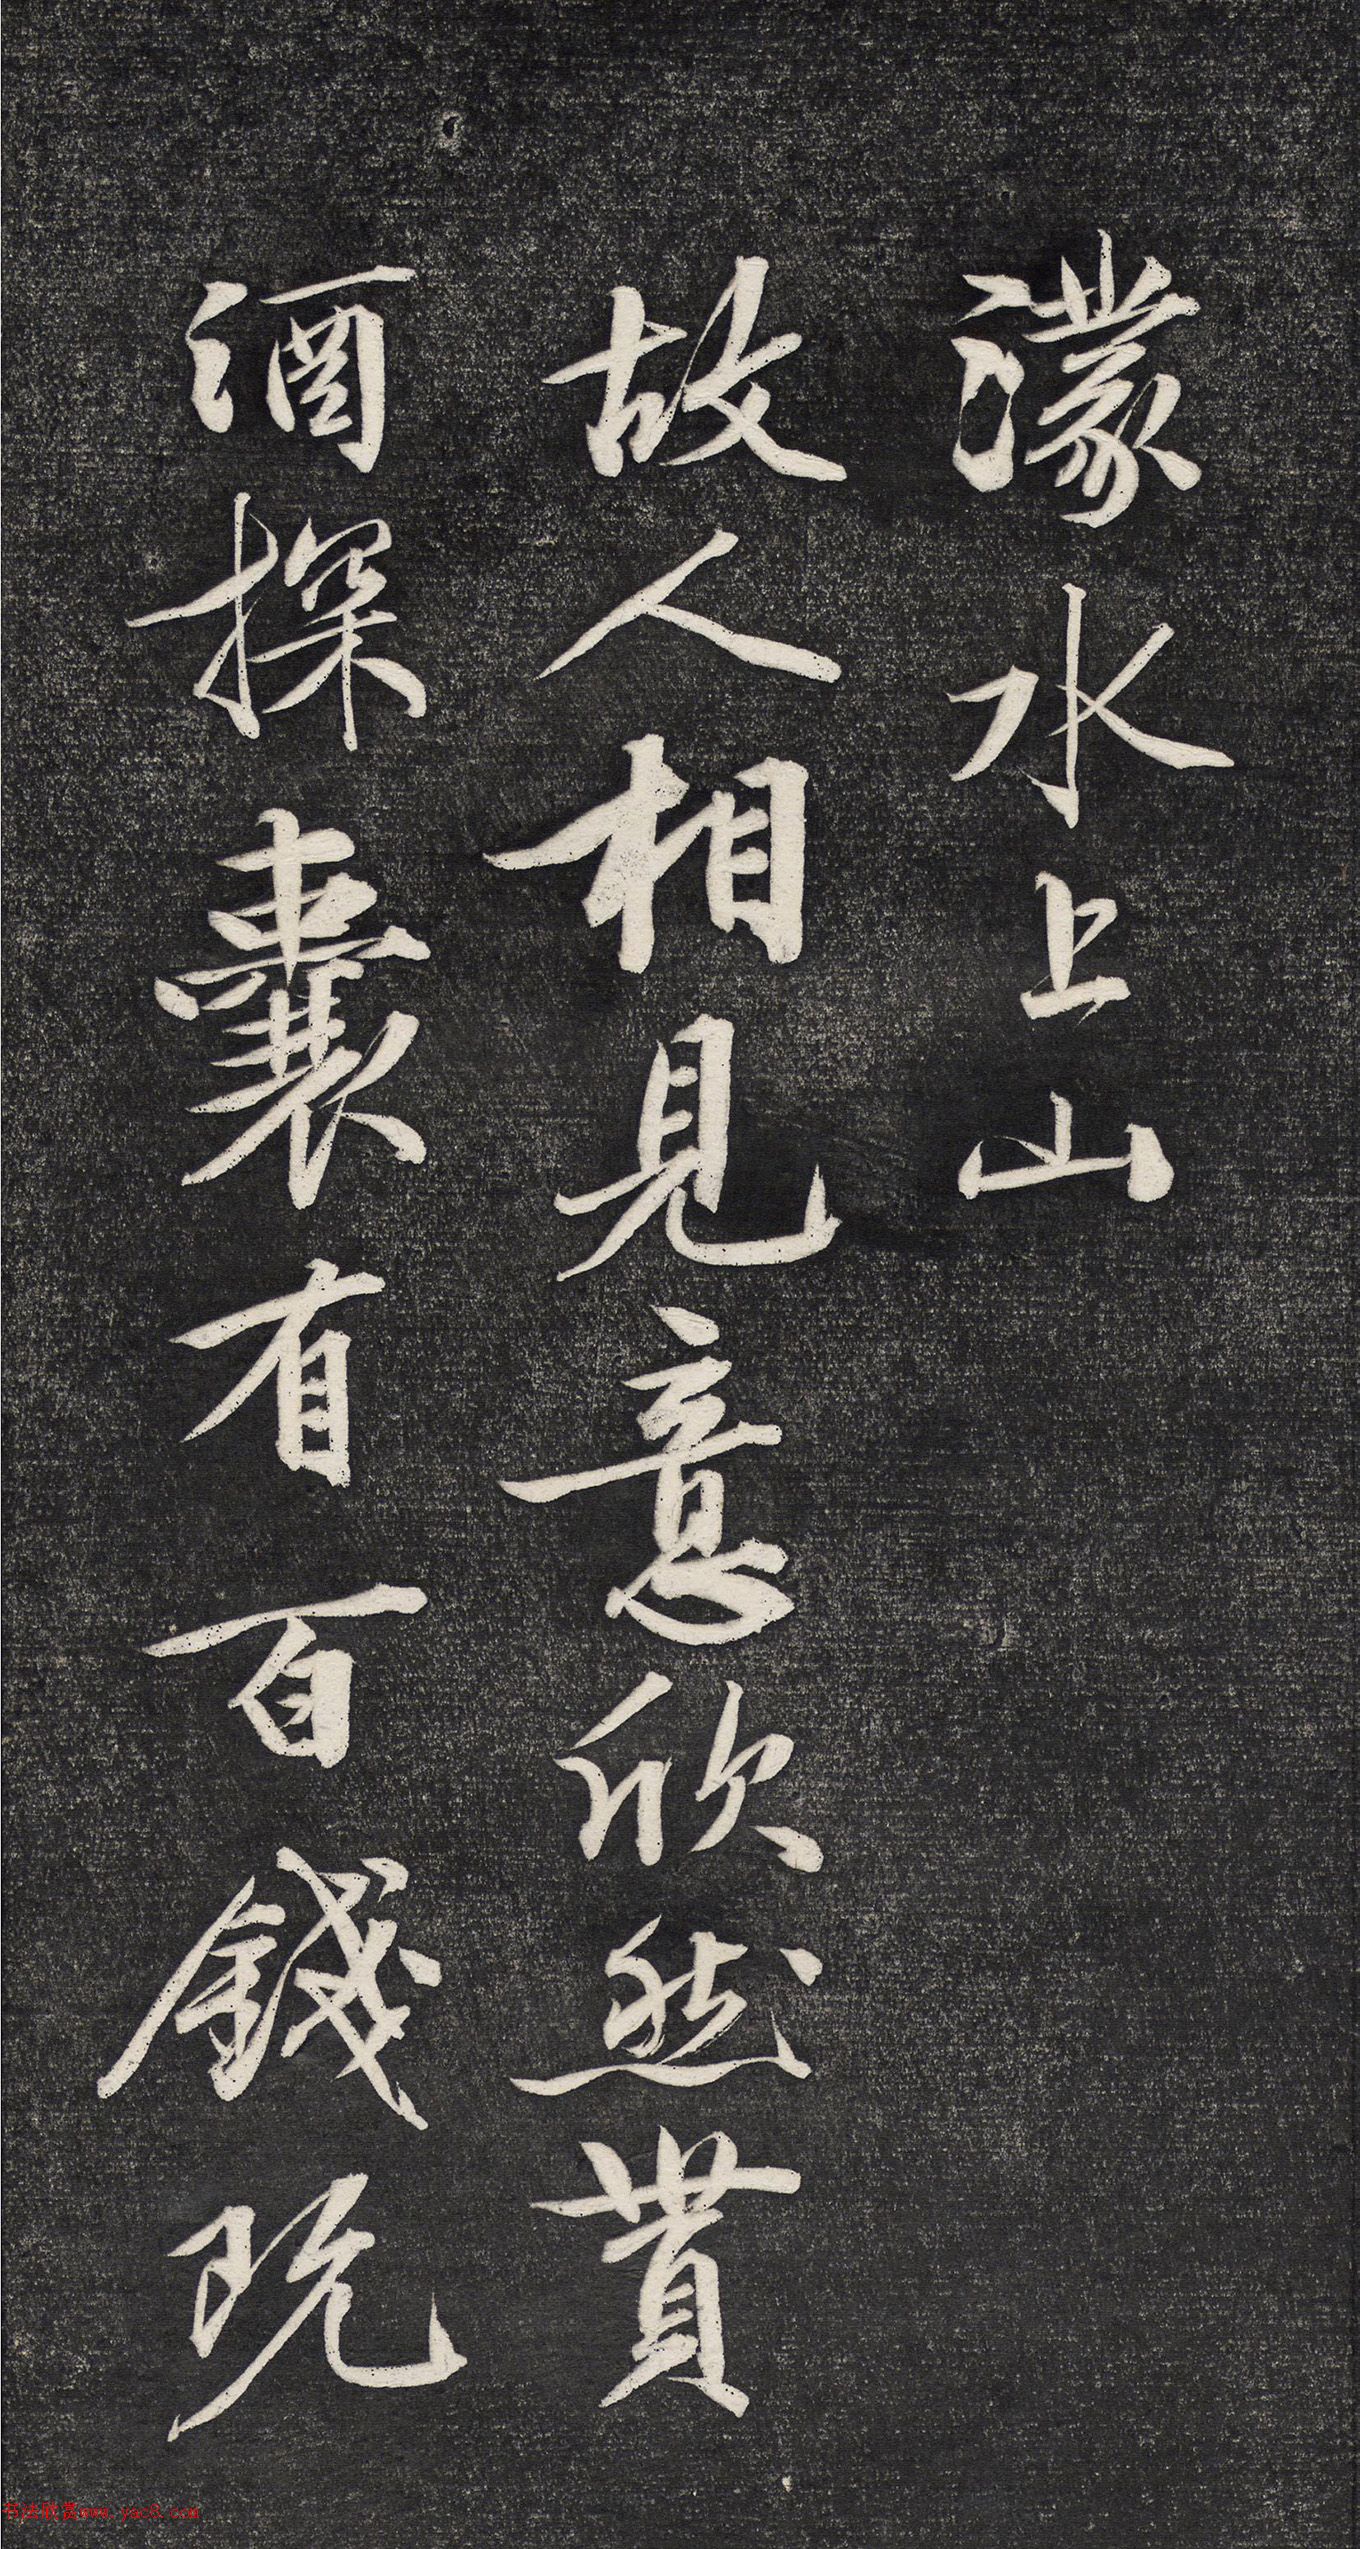 濛水上山
故人相見意欣然貰
酒探囊有百錢既
书法欣赏www.yac8.com